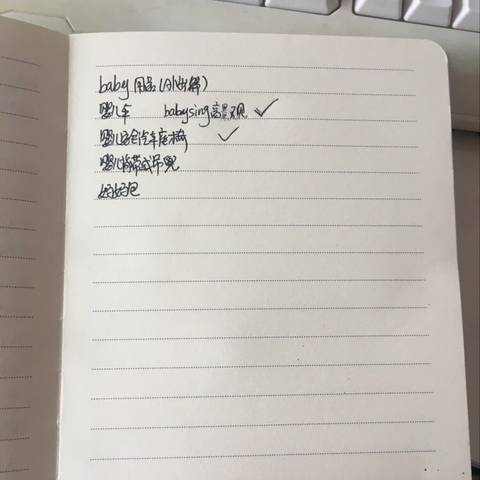 baby用品(外出篇)
婴儿车 babysing高景观 ✓
婴儿安全汽车座椅 ✓
婴儿背带或吊兜
妈妈包